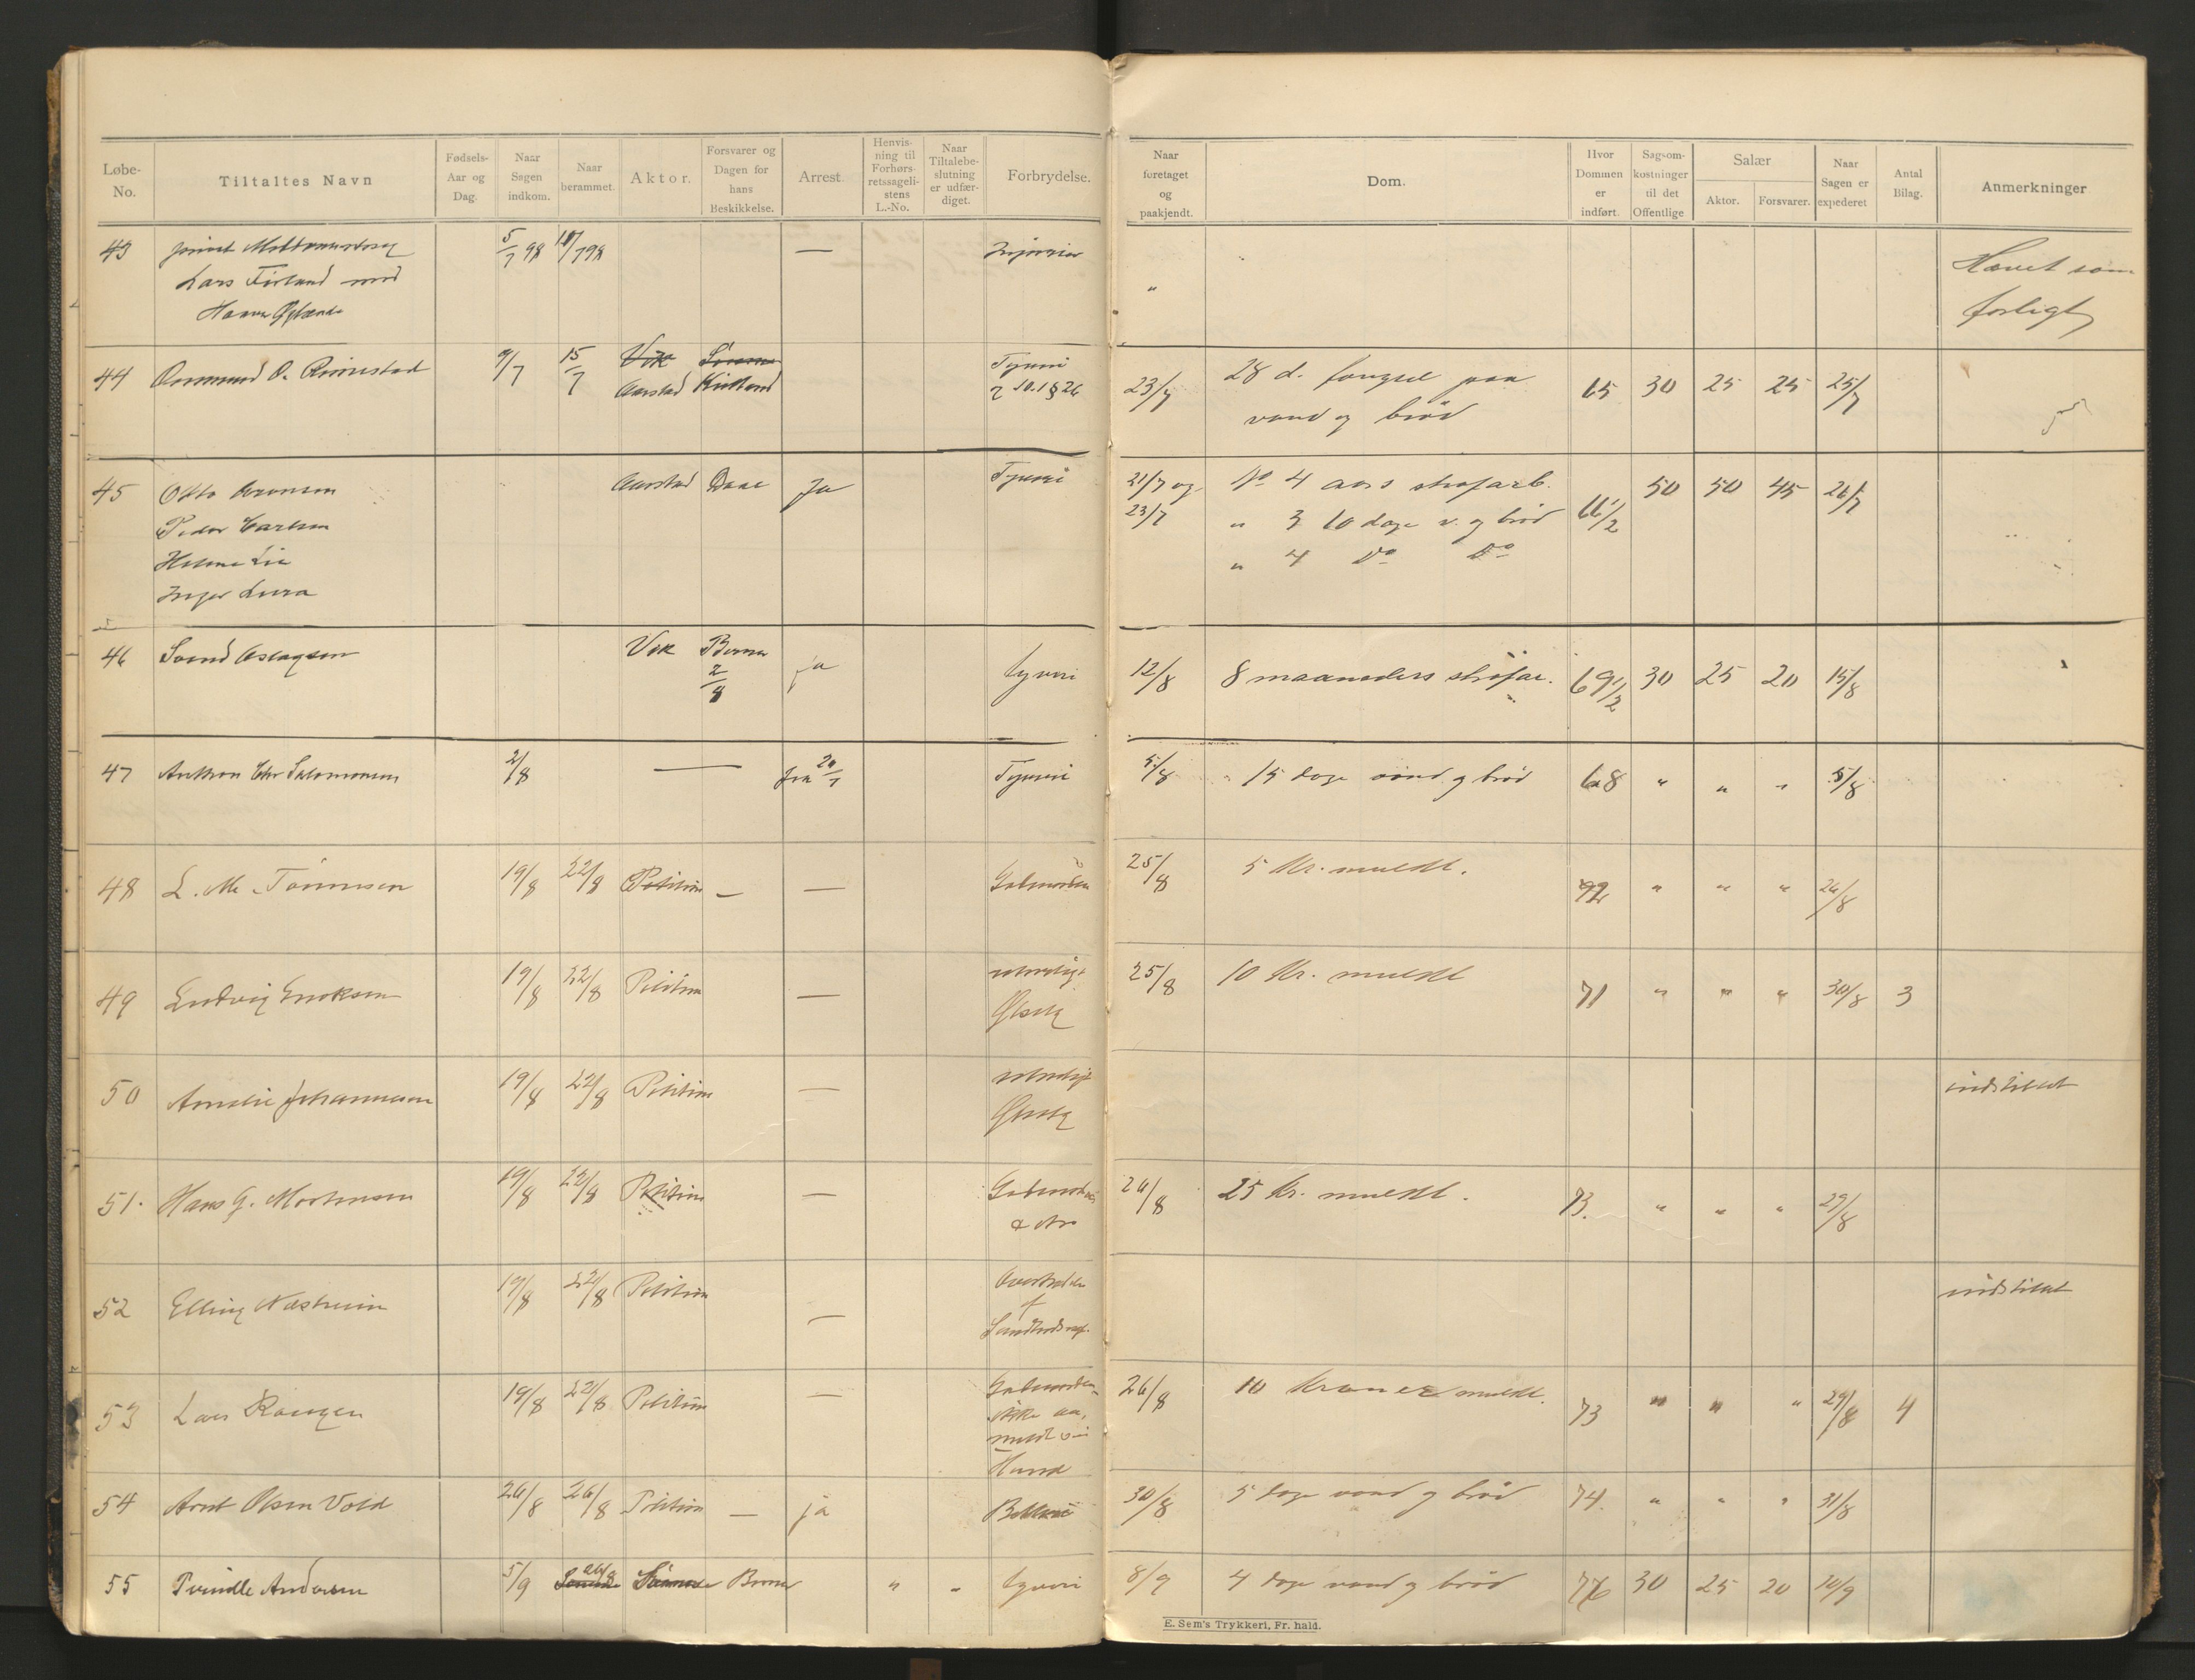 Løbe-No. Tiltaltes Navn Fødsels-Aar og Dag. Naar Sagen indkom. Naar berammet. Aktor. Forsvarer og Dagen for hans Beskikkelse. Arrest. Henvisning til Forhørsretssagelistens L.-No. Naar Tiltalebeslutning er udfærdiget. Forbrydelse. Naar foretaget og paakjendt. Dom. Hvor Dommen er indført. Sagsomkostninger til det Offentlige Salær Aktor. Forsvarer. Naar Sagen er expederet Antal Bilag. Anmerkninger
43 privat 5/7 98 — Injurier " Hævet som
Lars Førland mod forligt
Hanna
44 O. 9/7 15/7 Vik Tyveri 23/7 28 d. fængsel paa 65 30 25 25 25/7
Aarstad vand og brød
45 Otto Aronsen Aarstad Daae Ja Tyveri 21/7 og No 4 aars strafarb. 66 1/2 50 50 45 26/7
Peder Carlsen 23/7 " 3 10 dage v. og brød
Helene Lie " 4 Do Do
Inger Lura
46 Svend Aslagsen Vik 2/8 ja tyveri 12/8 8 maaneders strafar. 69 1/2 30 25 20 15/8
47 Anthon Chr Salomonsen 2/8 — fra Tyveri 5/8 15 dage vand og brød 68 " " " 5/8
48 L. M. Tønnesen 19/8 22/8 Politiin — — Gadeuorden 25/8 5 Kr. mulkt. 72 " " " 26/8
49 Ludvig Eriksen 19/8 22/8 Politiin — ulovligt 25/8 10 Kr. mulkt 71 " " " 30/8 3
Ølsalg
50 Amalie Johannesen 19/8 22/8 Politiin — ulovligt indstillet
Ølsalg
51. Hans G. Mortensen 19/8 22/8 Politiin — Gadeuorden 26/8 25 Kr. mulkt. 73. " " " 29/8
52 Elling Næsheim 19/8 22/8 Politiin — af indstillet
53 Lars 19/8 22/8 Politiin — Gadeuorden 26/8 10 Kroner mulkt. 73 " " " 29/8 4
ikke an-
meldt
Hund
54 Arnt Olsen Vold 26/8 26/8 Politiin — ja Betleri 30/8 5 dage vand og brød 74. " " " 31/8
55 Andersen 5/9 26/8 " " tyveri 8/9 4 dage vand og brød 76 30 25 20 10/9
E. Sem's Trykkeri, Fr. hald.